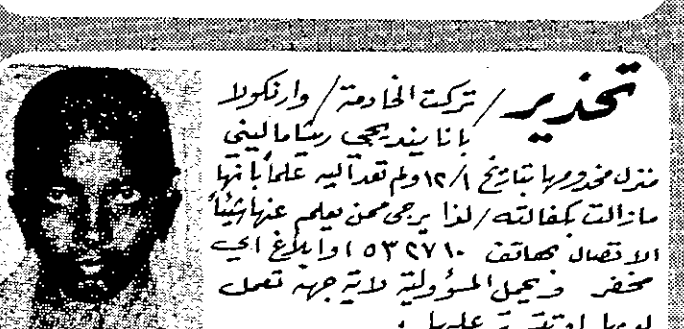 تحذير / تركت الخادمة / وارنكولا
باناينديجي ريشاماليني
منزل مخدومها بتاريخ ١٢/١ ولم تعد اليه علماً بأنها
مازالت بكفالته / لذا يرجى ممن يعلم عنها شيئاً
الاتصال بهاتف ٥٣٢٧١٠ اوابلاغ اي
مخفر ويحمل المسؤولية لاية جهه تعمل
لديها او تتستر عليها .